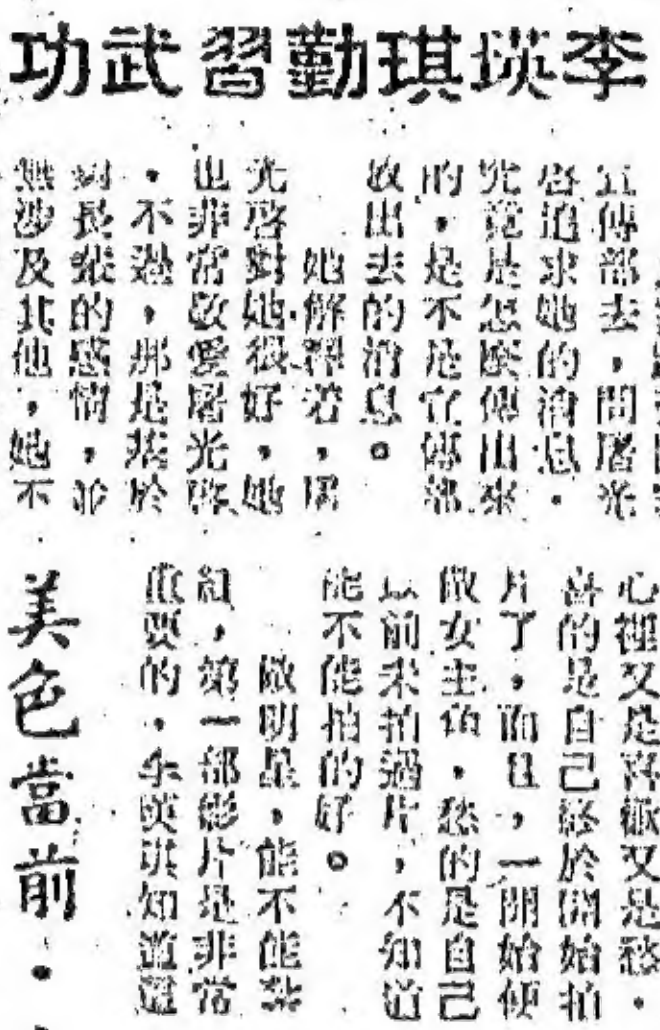 李瑛琪勤習武功
宣傳部去，問屠光
啓追求她的消息。
究竟是怎麼傳出來
的，是不是宣傳部
放出去的消息。
她解釋着，屠
光啓對她很好，她
也非常敬愛屠光啓
。不過，那是基於
對長輩的感情，並
無涉及其他，她不
心裡又是喜歡又是愁。
喜的是自己終於開始拍
片了，而且，一開始便
做女主角，愁的是自己
以前未拍過片，不知道
能不能拍的好。
做明星，能不能紮
紅，第一部影片是非常
重要的，李瑛琪知道這
美色當前．